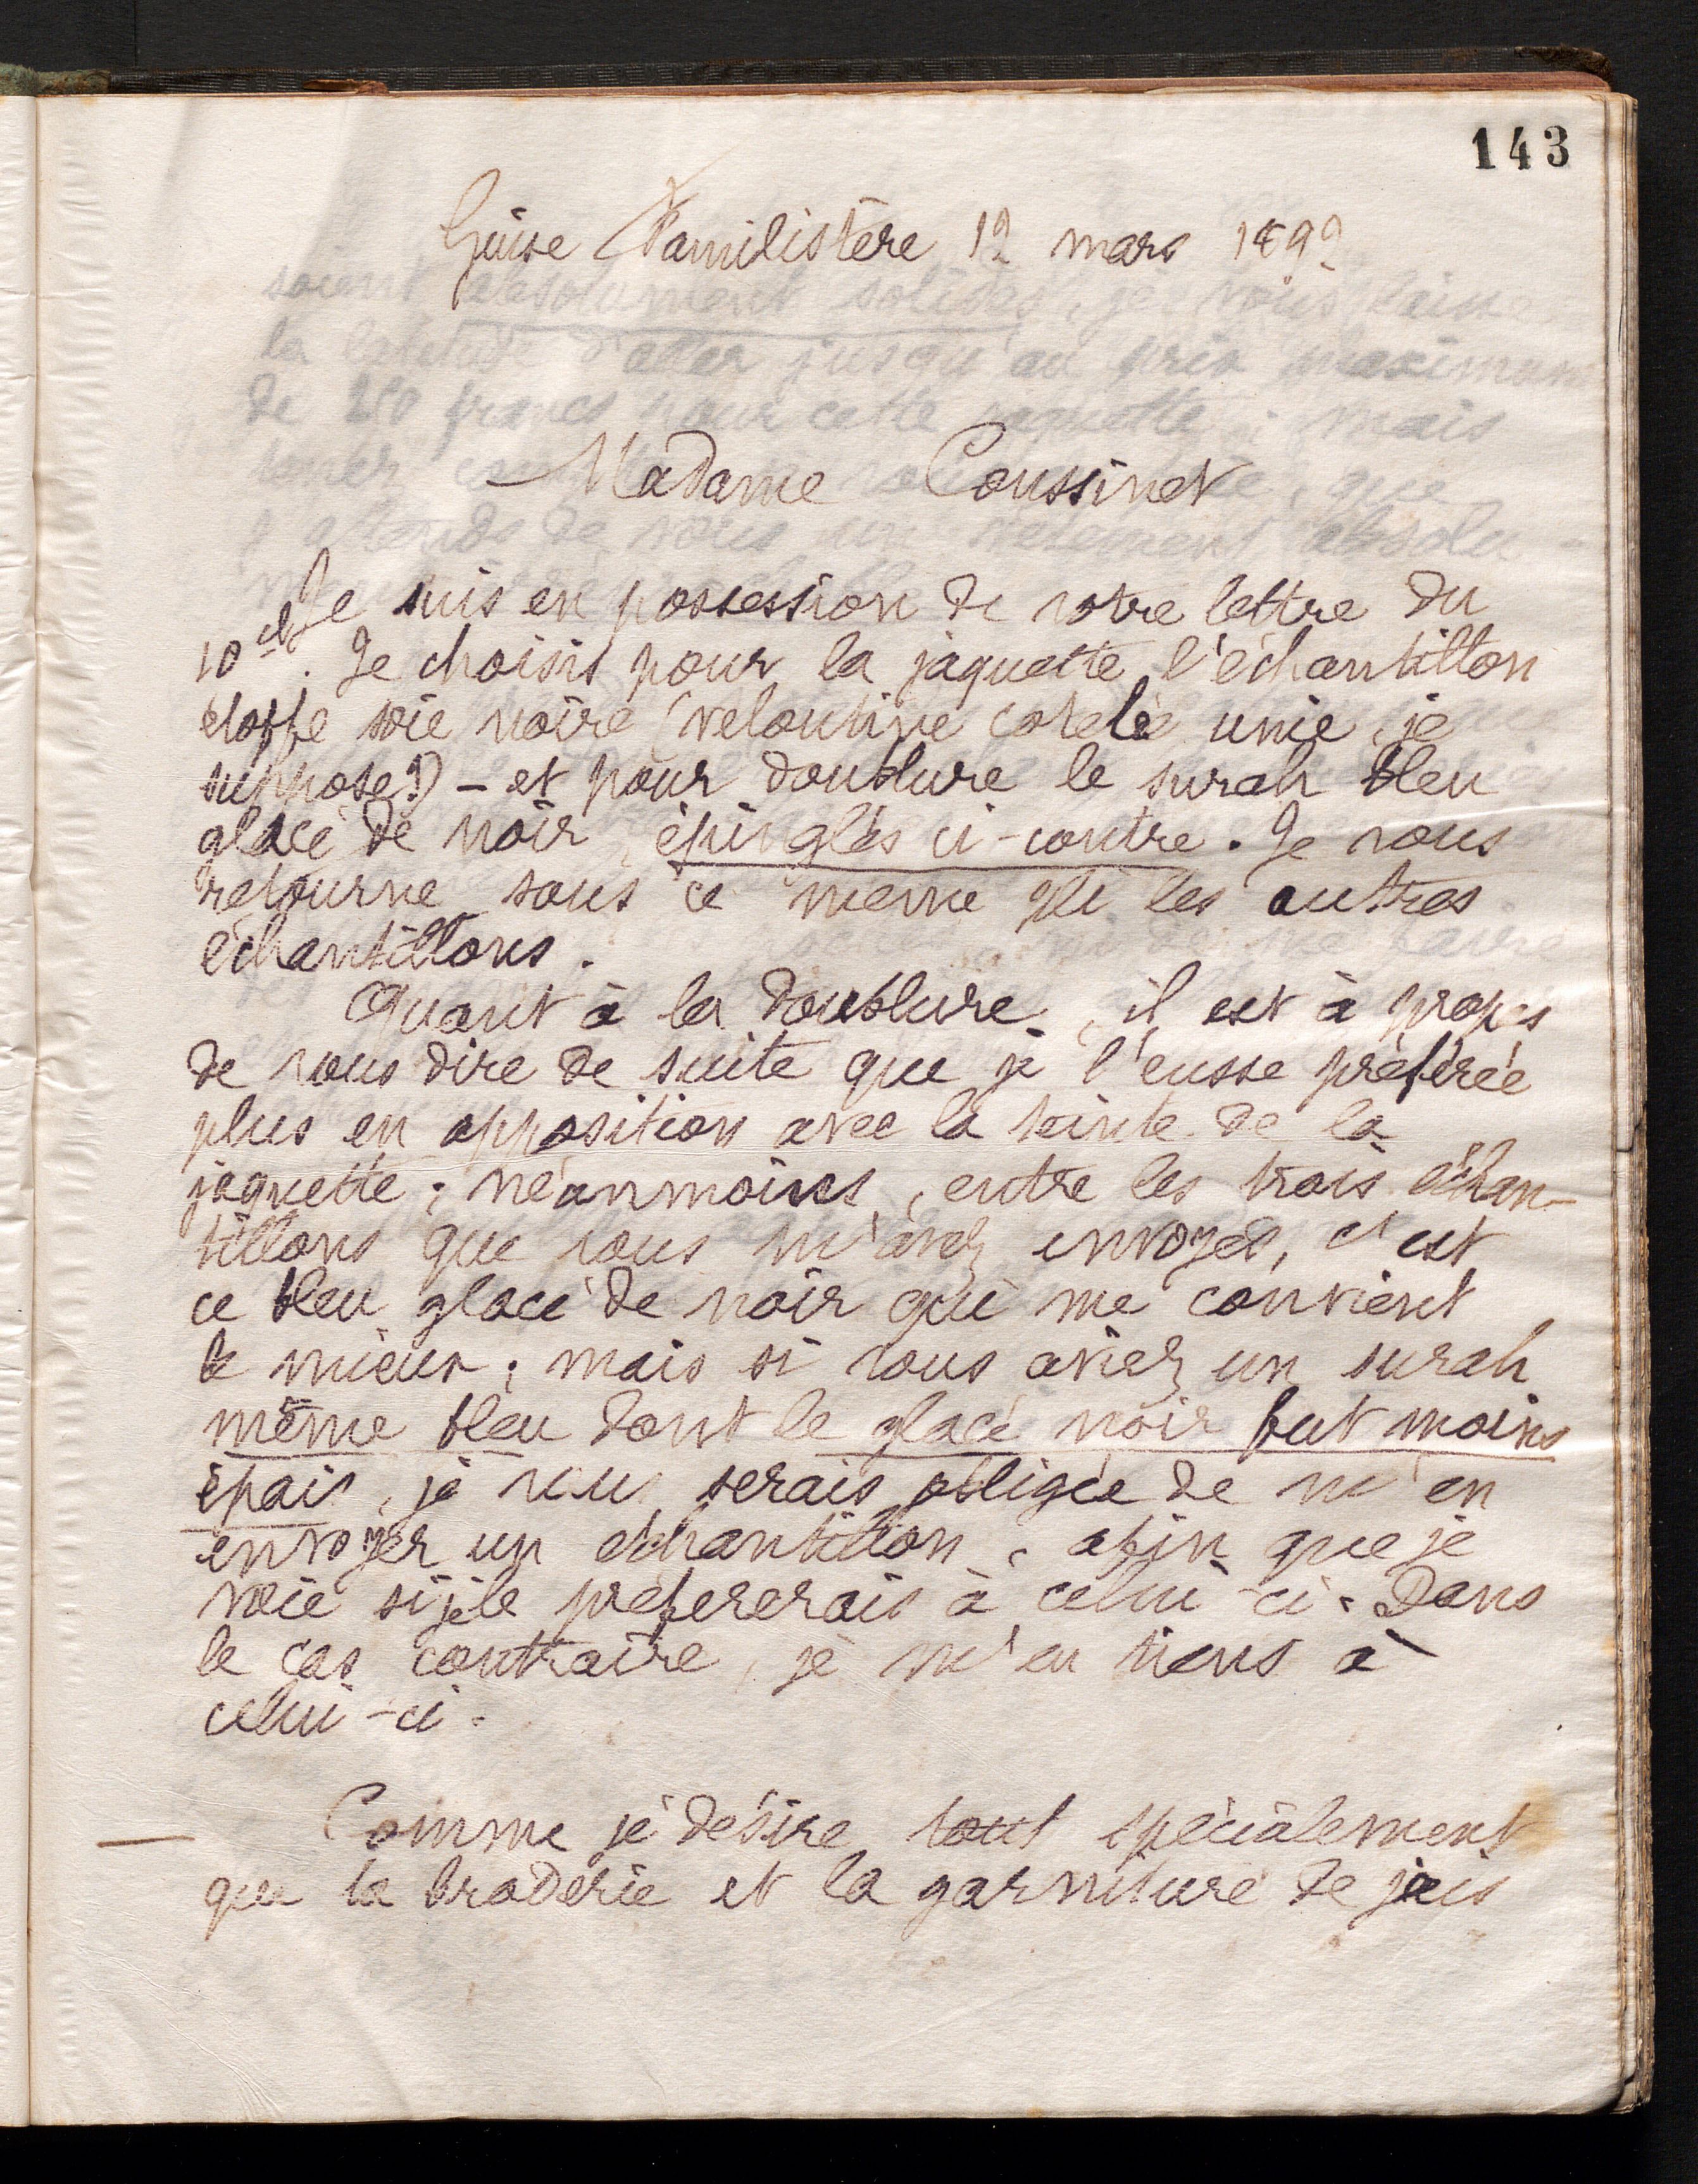 143
Guise Familistère 12 mars 1892
Madame Coussinet
Je suis en possession de votre lettre du
10 ct. Je choisis pour la jaquette l'échantillon
étoffe soie noire (veloutine cotelé unie, je
suppose?) – et pour doublure le surah bleu
glacé de noir, épinglés ci-contre. Je vous
retourne sous ce même pli les autres
échantillons.
Quant à la doublure, il est à propos
de vous dire de suite que je l'eusse préférée
plus en opposition avec la teinte de la
jaquette; néanmoins, entre les trois échan-
tillons que vous m'avez envoyés, c'est
ce bleu glacé de noir qui me convient
le mieux; mais si vous aviez un surah
même bleu dont le glacé noir fut moins
épais, je vous serais obligée de m'en
envoyer un échantillon, afin que je
voie si je le préfererais à celui-ci. Dans
le cas contraire, je m'en tiens à
celui-ci.
Comme je désire tout spécialement
que la broderie et la garniture de jais